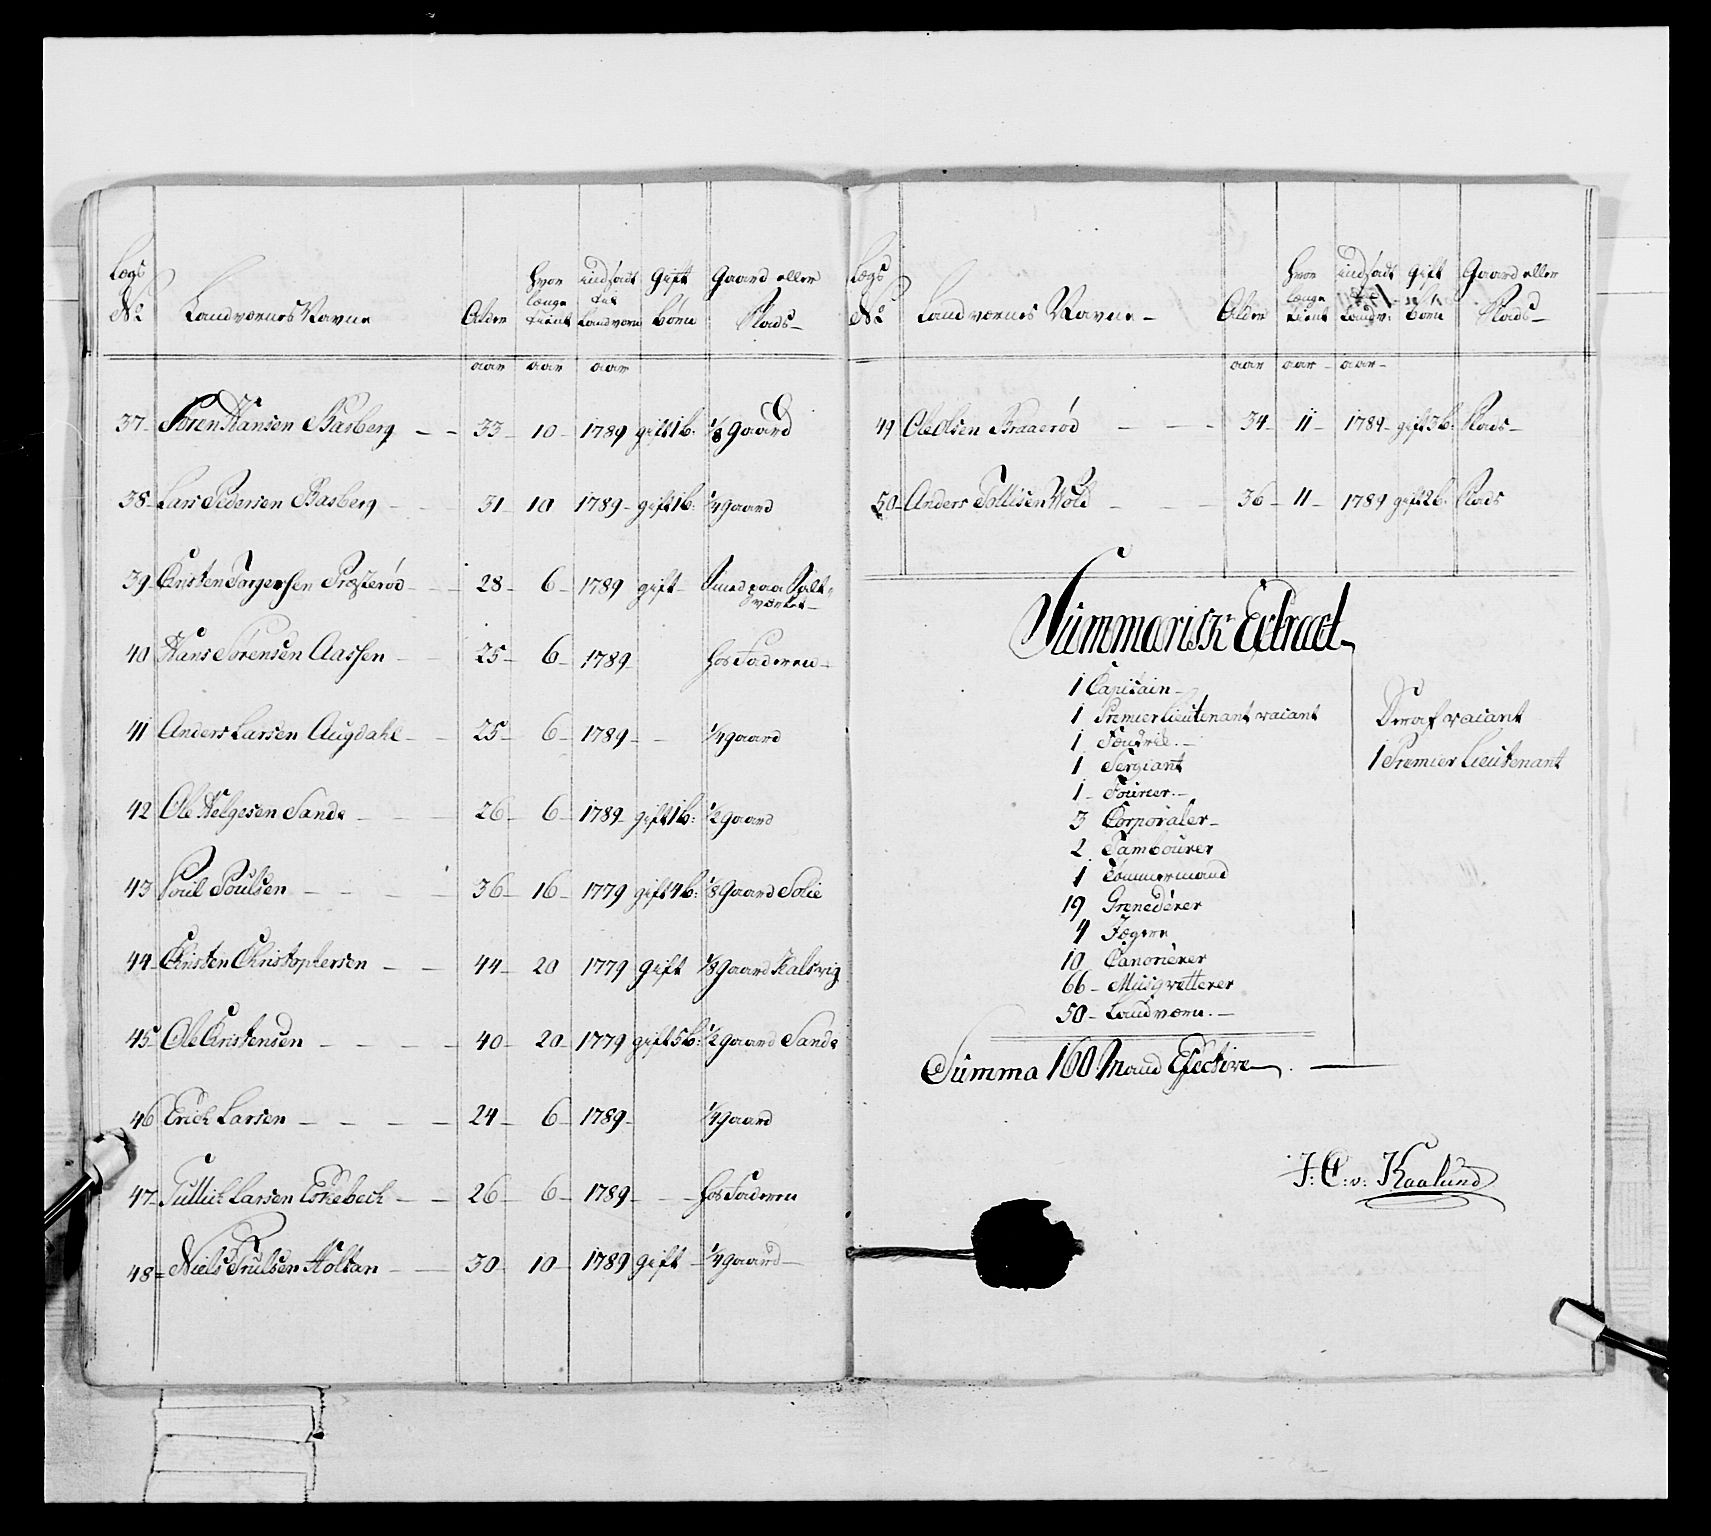 Lægs No Landværnes Navne Alder Hvor længe tient indsadt til Landværn Gift Børn Gaard eller Plads
aar aar aar
37 Søren Hansen Basberg 33 10 1789 gift 1 b: 1/8 Gaard
38 Lars Pedersen Basberg 31 10 1789 gift 1 b: 1/4 gaard
39 Christen Torgersen Præsterød 28 6 1789 gift Smed paa Salt-
værket
40 Hans Sørensen Aassen 25 6 1789 hos Faderen
41 Anders Larsen Augdahl 25 6 1789 1/4 gaard
42 Ole Helgesen Sande 26 6 1789 gift 1 b: 1/2 gaard
43 Poul Poulsen 36 16 1779 gift 4 b: 1/8 gaard Solie
44 Christen Christophersen 44 20 1779 gift 1/8 gaard Kalsvig
45 Ole Christensen 40 20 1779 gift 5 b: 1/2 gaard Sande
46 Erich Larsen 24 6 1789 1/4 gaard
47 Tullick Larsen Eskebeck 26 6 1789 hos Faderen
48 Niels Trulsen Holtan 30 10 1789 gift 1/4 gaard
Lægs No Landværnes Navne Alder Hvor længe tient indsadt Landv: gift Børn Gaard eller Plads
aar aar aar
49 Ole Olsen Braaerød 34 11 1789 gift 3 b: Plads
50 Anders Tollefsen Wold 36 11 1789 gift 2 b: Plads
Summarisk Extract
1 Capitain
1 Premier Lieutenant vacant
1 Fendrik
1 Sergiant
1 Fourier
3 Corporaler
2 Tambourer
1 Tømmermand
19 Grenederer
4 Jægere
10 Canonerer
66 Musqvetterer
50 Landværn
Summa 160 Mand Efective
Deraf vacant
1 Premier Lieutenant
J: C: v: Kaalund